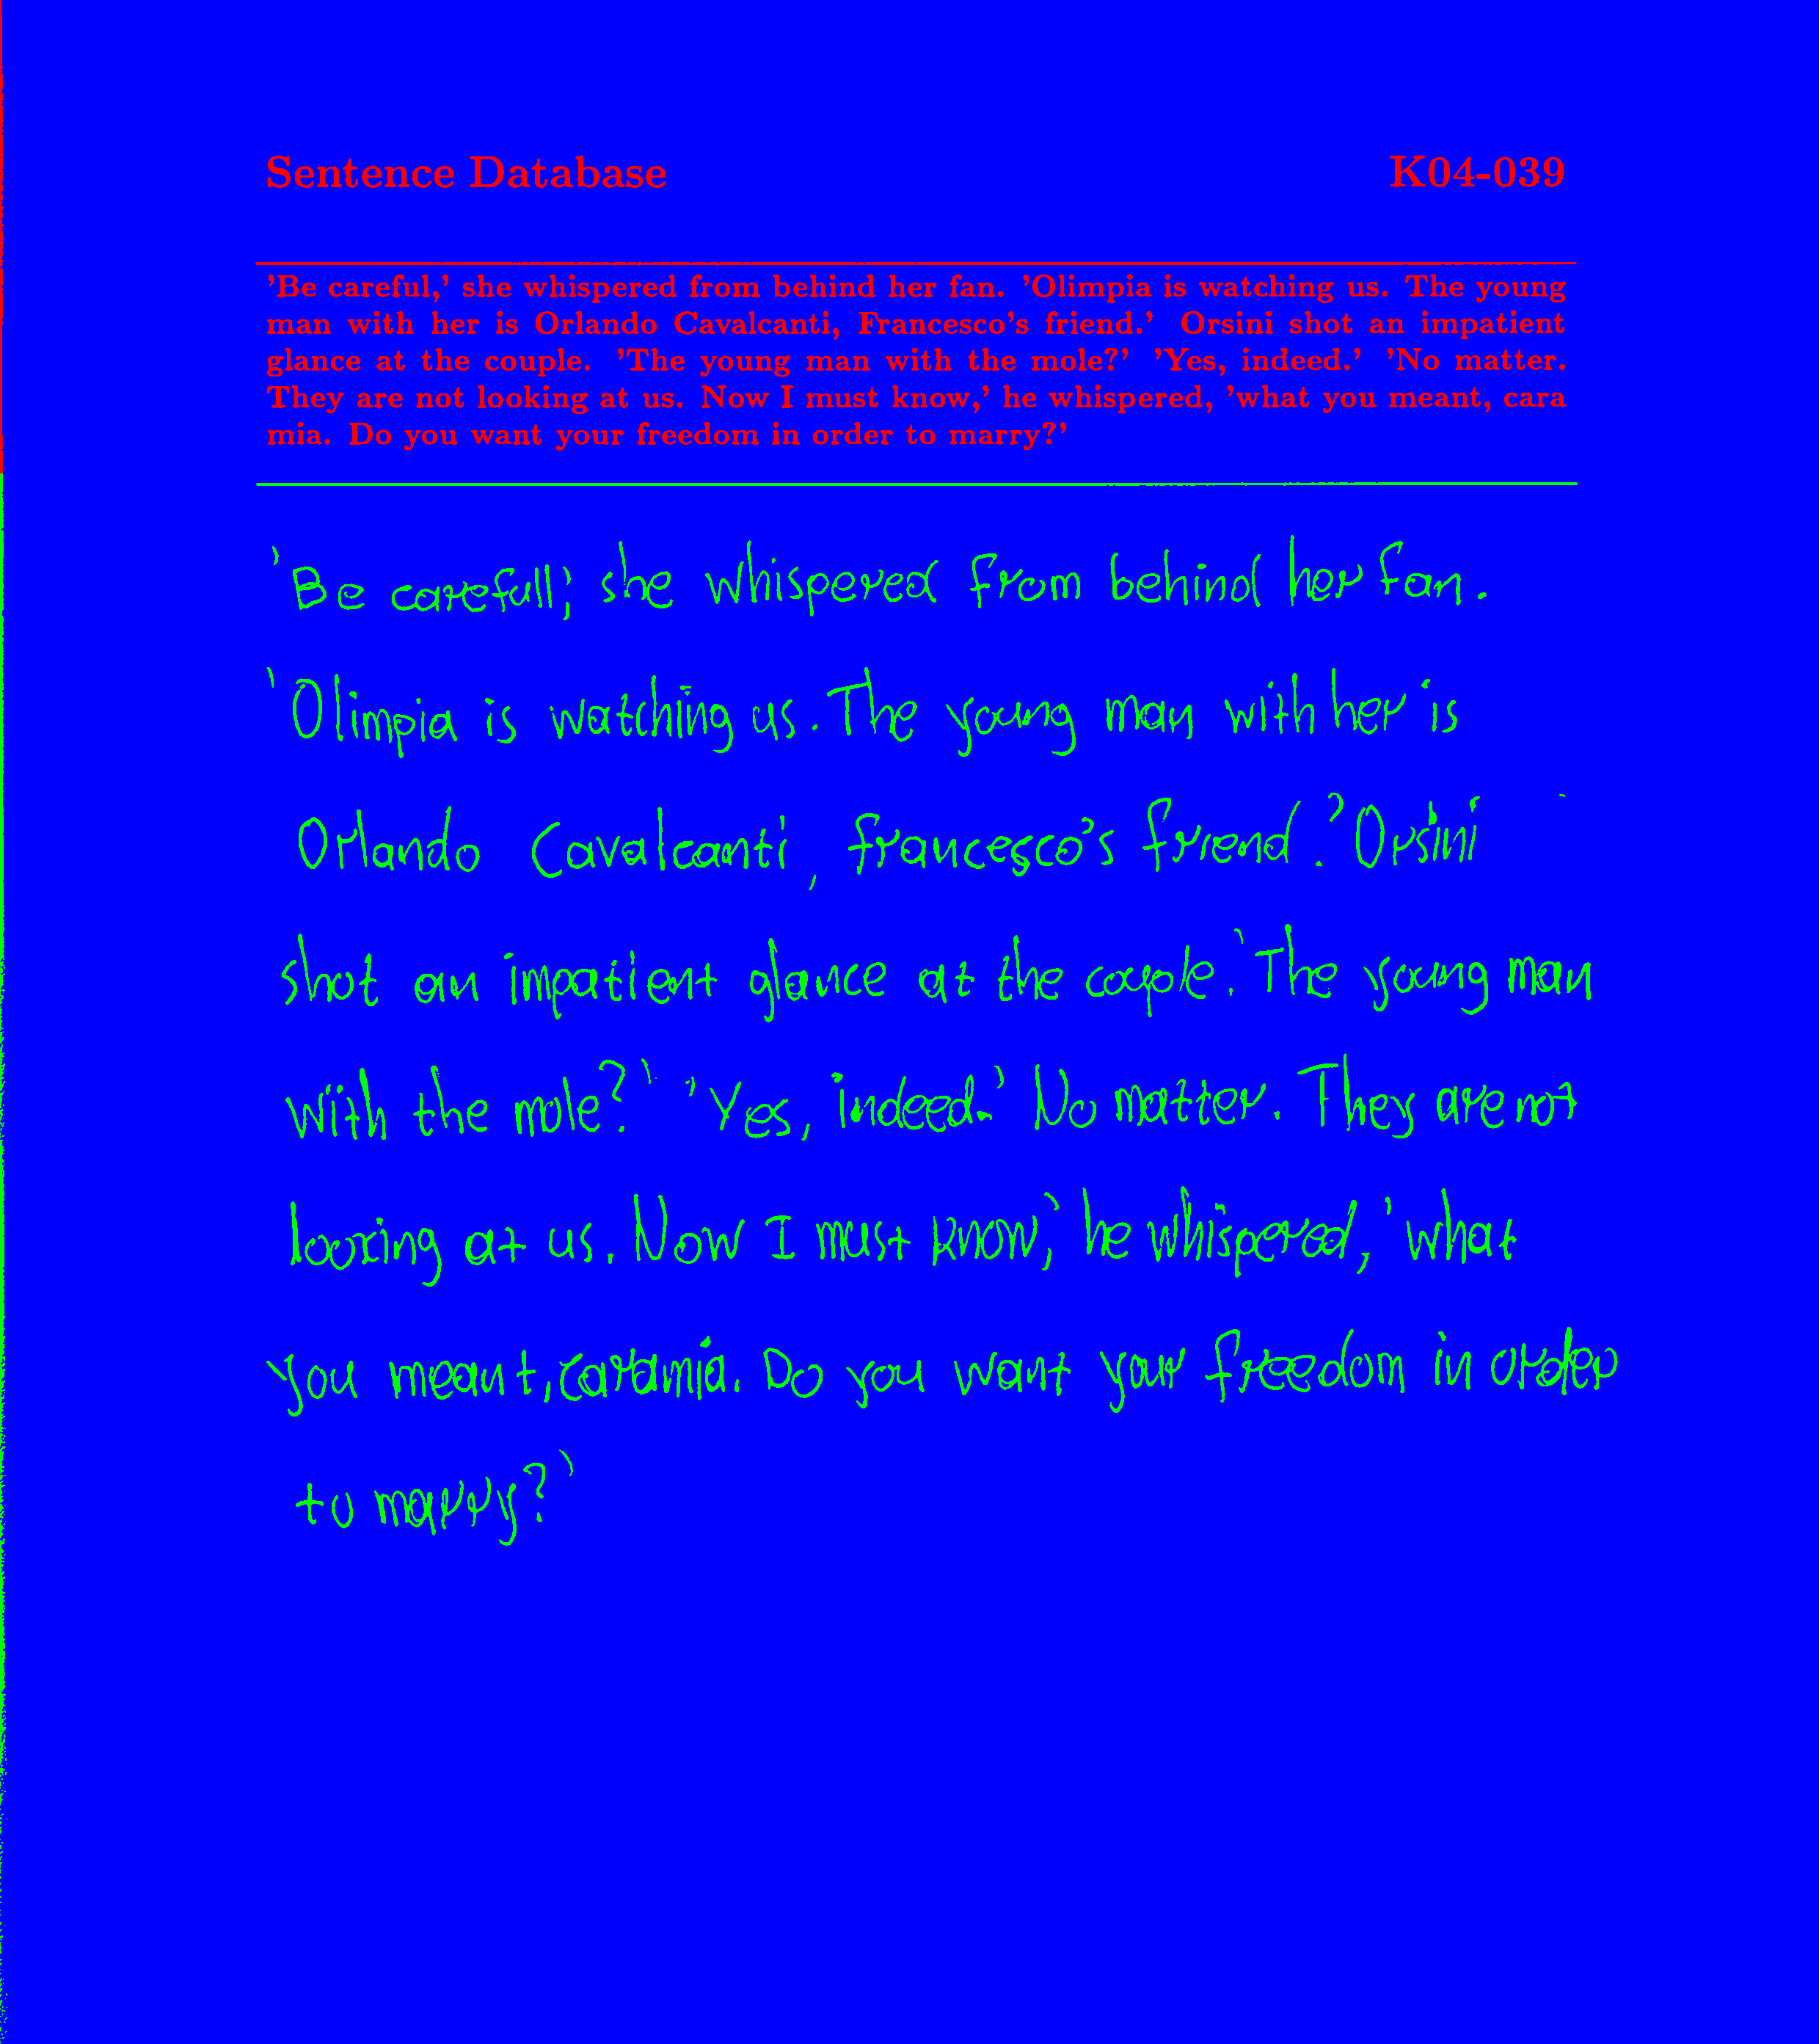 Sentence Database K04-039
'Be careful,' she whispered from behind her fan. 'Olimpia is watching us. The young
man with her is Orlando Cavalcanti, Francesco's friend.' Orsini shot an impatient
glance at the couple. 'The young man with the mole?' 'Yes, indeed.' 'No matter.
They are not looking at us. Now I must know,' he whispered, 'what you meant, cara
mia. Do you want your freedom in order to marry?'
'Be carefull,' she whispered from behind her fan.
'Olimpia is watching us. The young man with her is
Orlando Cavalcanti, francesco's friend.' Orsini
shot an impatient glance at the couple.' The young man
with the mole?' 'Yes, indeed.' No matter. They are not
looking at us. Now I must know,' he whispered, 'what
you meant, cara mia. Do you want your freedom in order
to marry?'